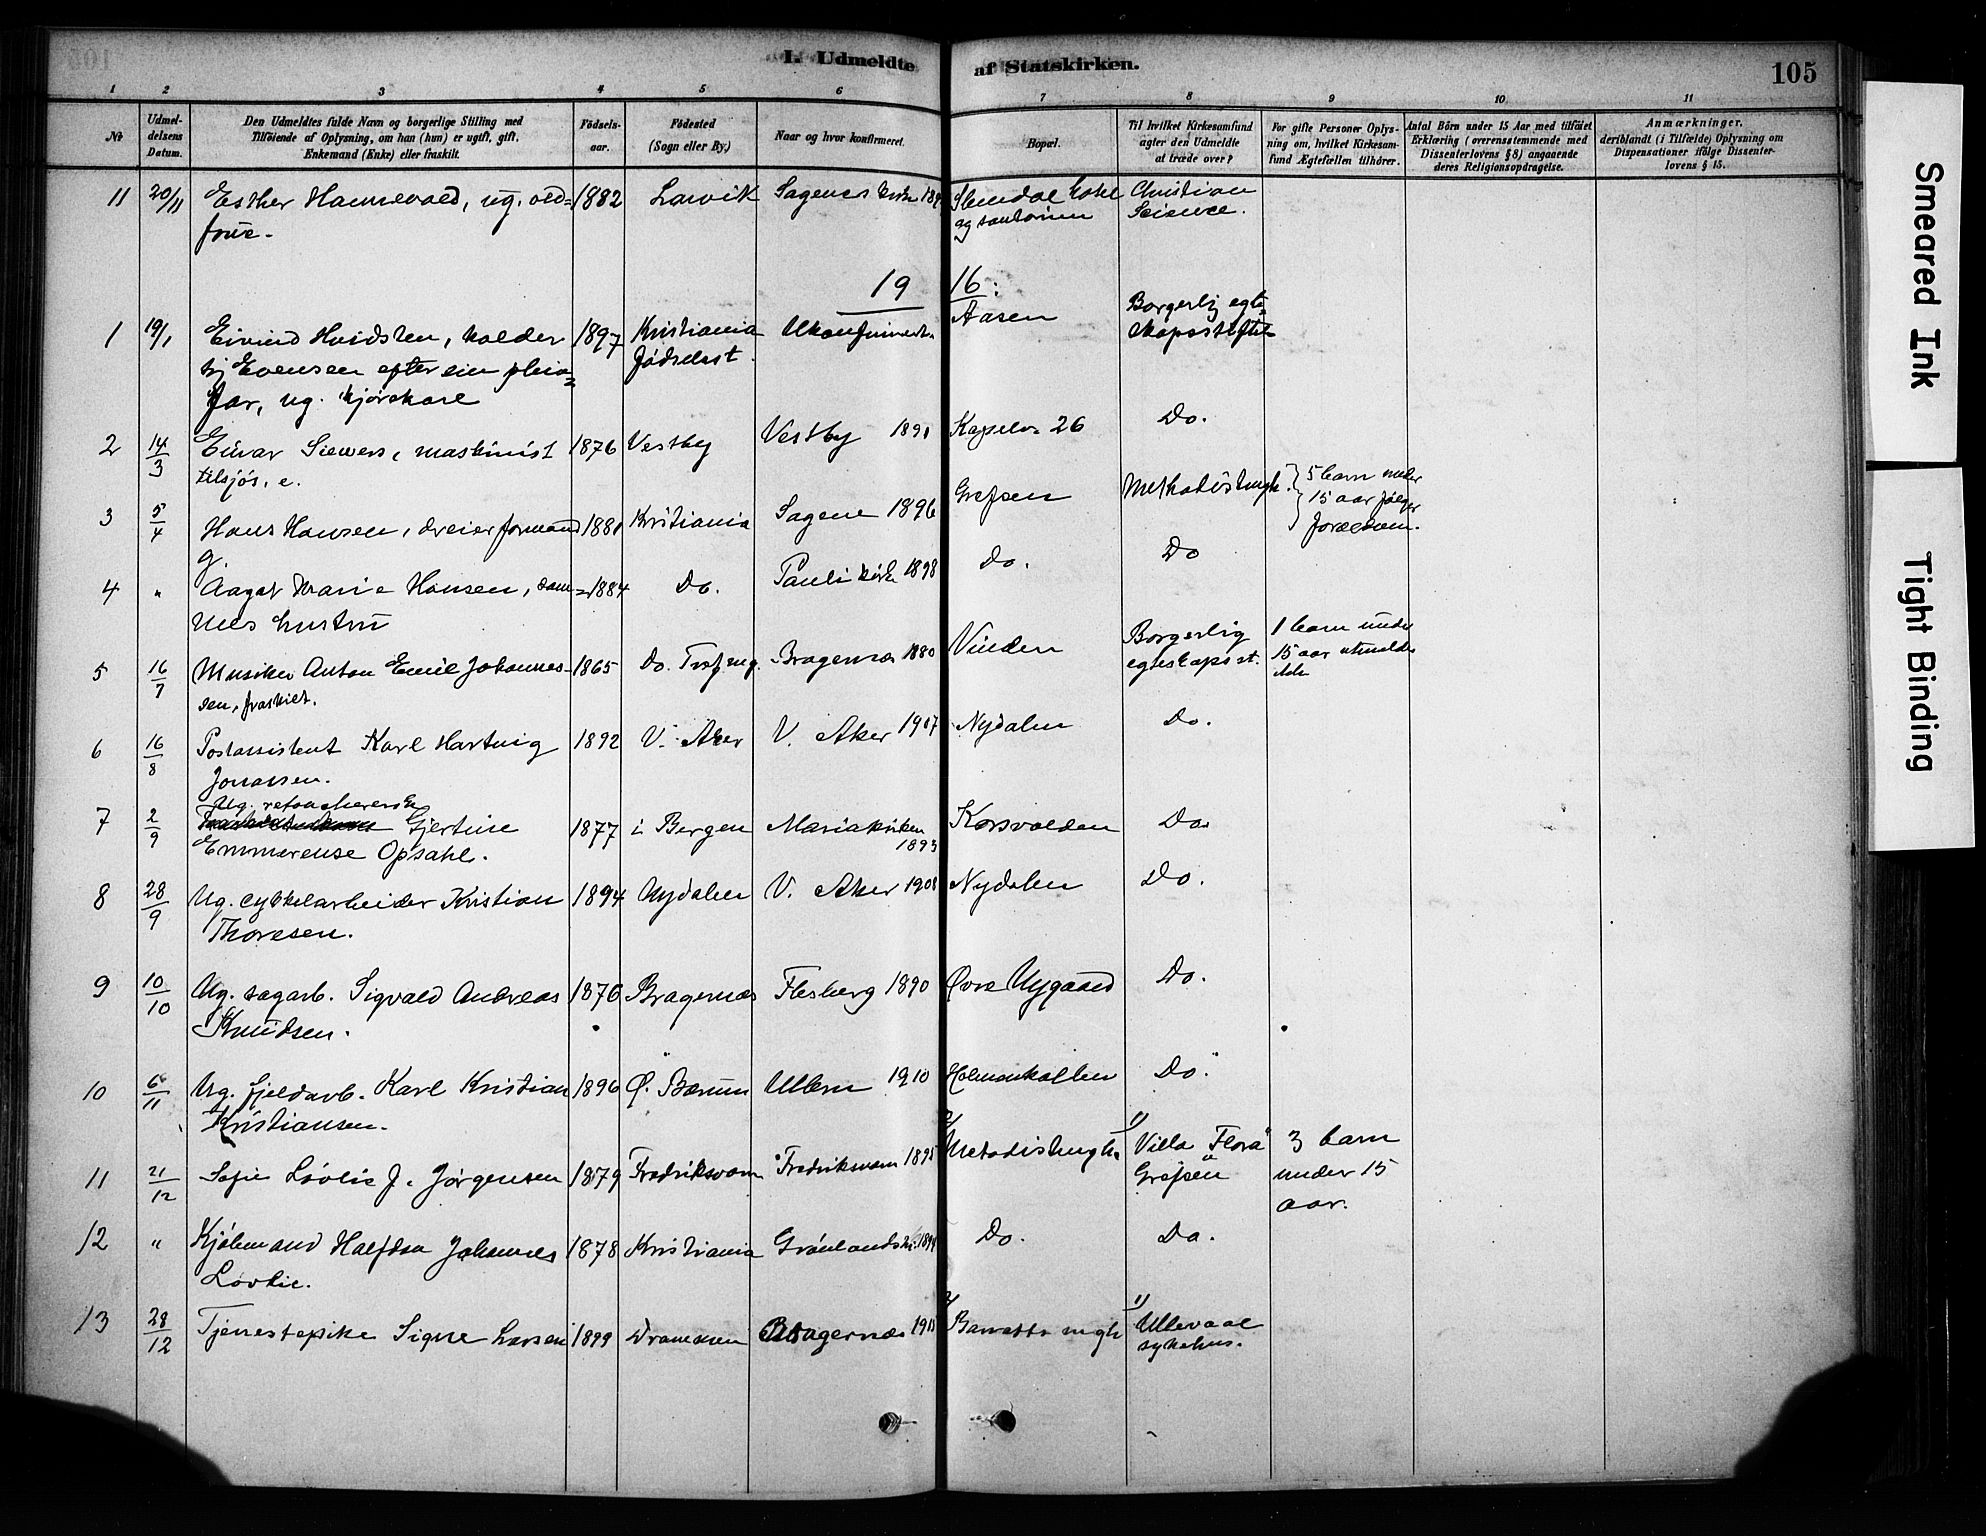 I. Udmeldte af Statskirken.
105
1 2 3 4 5 6 7 8 9 10 11
No
Udmeldelsens Datum.
Den Udmeldtes fulde Navn og borgerlige Stilling med
Tilføiende af Oplysning, om han (hun) er ugift, gift,
Enkemand (Enke) eller fraskilt.
Fødselsaar.
Fødested
(Sogn eller By.)
Naar og hvor konfirmeret.
Bopæl.
Til hvilket Kirkesamfund
agter den Udmeldte
at træde over?
For gifte Personer Oplys-
ning om, hvilket Kirkesam-
fund Ægtefællen tilhører.
Antal Børn under 15 Aar med tilføiet
Erklæring (overensstemmende med
Dissenterlovens § 8) angaaende
deres Religionsopdragelse.
Anmærkninger,
deriblandt (i Tilfælde) Oplysning om
Dispensationer ifølge Dissenter-
lovens § 15.
11 20/11 Esther Hannevold, ug. old= 1882 Larvik Sagenes kirke Hotel Christian
frue. og sanatorium Science.
19 16:
1 19/1 Eivind Hvidsten, kalder 1897 Kristiania Ukonfirmert. Aasen Borgerlig egte
sig Evensen efter sin pleie= fødselsst. skapsstiftel
far, ug. kjørekarl
2 14/3 Einar Siewers, maskinist 1876 Vestby Vestby 1891 Kapelv. 26 Do.
tilsjøs, e.
3 5/4 Hans Hansen, dreierformand 1881 Kristiania Sagene 1896 Grefsen Methodistmgh. 5 barn under
g. 15 aar følger
forældrene.
4 " Aagot Marie Hansen, sam= 1884 Do. Pauli kirke 1898 Do. Do
mes hustru
5 16/7 Musiker Anton Emil Johannes- 1865 Do. Bragernæs 1880 Vinderen Borgerlig 1 barn under
sen, fraskilt. egteskapsst. 15 aar utmeldes
ikke
6 16/8 Postassistent Karl Hartvig 1892 V. Aker V. Aker 1907 Nydalen Do.
Jonassen.
7 2/9 Ug. retoucherersk Gjertine 1877 i Bergen Mariakirken 1893 Korsvolden Do.
Emmerense Opsahl.
8 28/9 Ug. cykkelarbeider Kristian 1894 Nydalen V. Aker 1908 Nydalen Do.
Thoresen.
9 10/10 Ug. sagarb. Sigvald Andreas 1876 Bragernæs Flesberg 1890 Øvre Nygaard Do.
Knudsen.
10 6/11 Ug. fjeldarb. Karl Kristian 1896 Ø. Bærum Ullern 1910 Holmenkollen Do.
Kristiansen.
11 21/12 Sofie Løvlie f. Jørgensen 1879 Fredriksværn Fredriksværn 1895 2/ Metodistmgh. 1/ Villa "Flora" 3 barn
Grefsen under 15
aar.
12 " Kjøbmand Halfdan Johannes 1878 Kristiania Grønlands k. Do. Do.
Løvlie.
13 28/12 Tjenestepike Signe Larsen 1899 Drammen Bragernæs 2/ 1/ Ullevaal
sykehus.
Smeared Ink
Tight Binding